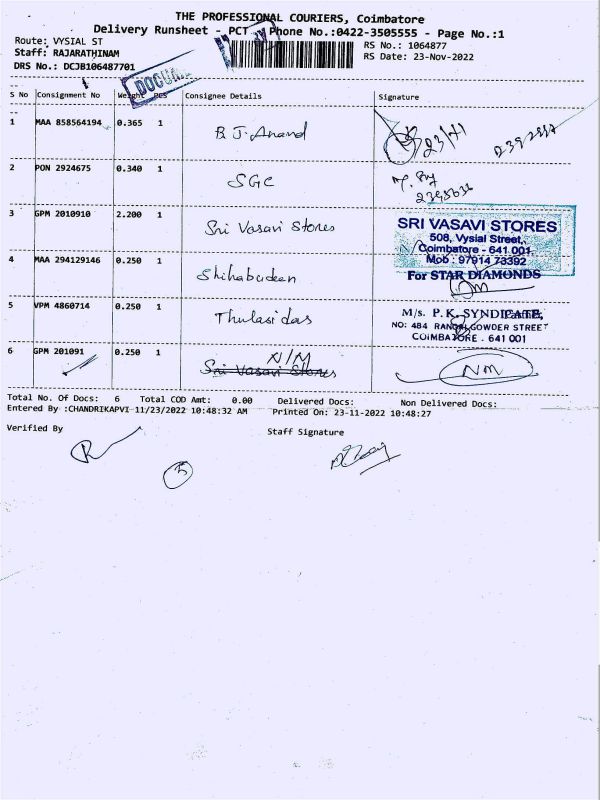 THE PROFESSIONAL COURIERS, Coimbatore
Delivery Runsheet - PCT Phone No.:0422-3505555 - Page No.:1
Route: VYSIAL ST
RS No.: 1064877
Staff: RAJARATHINAM
RS Date: 23-Nov-2022
DRS No.: DCJB106487701
S No Consignment No Weight PCS Consignee Details Signature
1 MAA 858564194 0.365 1 B.J. Anand
23/11
2 PON 2924675 0.340 1 SGC
3 GPM 2010910 2.200 1 Sri Vasavi Stores
SRI VASAVI STORES
508, Vysial Street,
Coimbatore - 641 001
Mob : 97914 73392
4 MAA 294129146 0.250 1 Shihabudeen
For STAR DIAMONDS
5 VPM 4860714 0.250 1 Thulasidas
M/s. P.K. SYNDICATE,
NO: 484 RANGAI GOWDER STREET
COIMBATORE - 641 001
6 GPM 201091 0.250 1 N/M
Sri Vasavi Stores
NM
Total No. Of Docs: 6 Total COD Amt: 0.00 Delivered Docs: Non Delivered Docs:
Entered By :CHANDRIKAPVI-11/23/2022 10:48:32 AM Printed On: 23-11-2022 10:48:27
Verified By Staff Signature